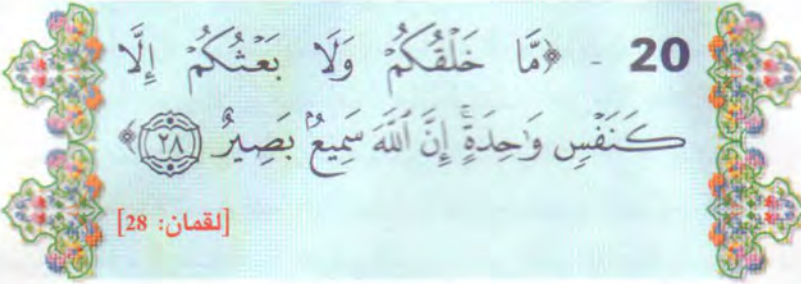 20 - ﴿مَّا خَلْقُكُمْ وَلَا بَعْثُكُمْ إِلَّا
كَنَفْسٍ وَٰحِدَةٍۗ إِنَّ ٱللَّهَ سَمِيعٌۢ بَصِيرٌ ﴿٢٨﴾﴾
[لقمان: 28]